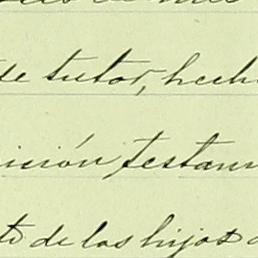 de tutor, hech
ición testam
de los hijos